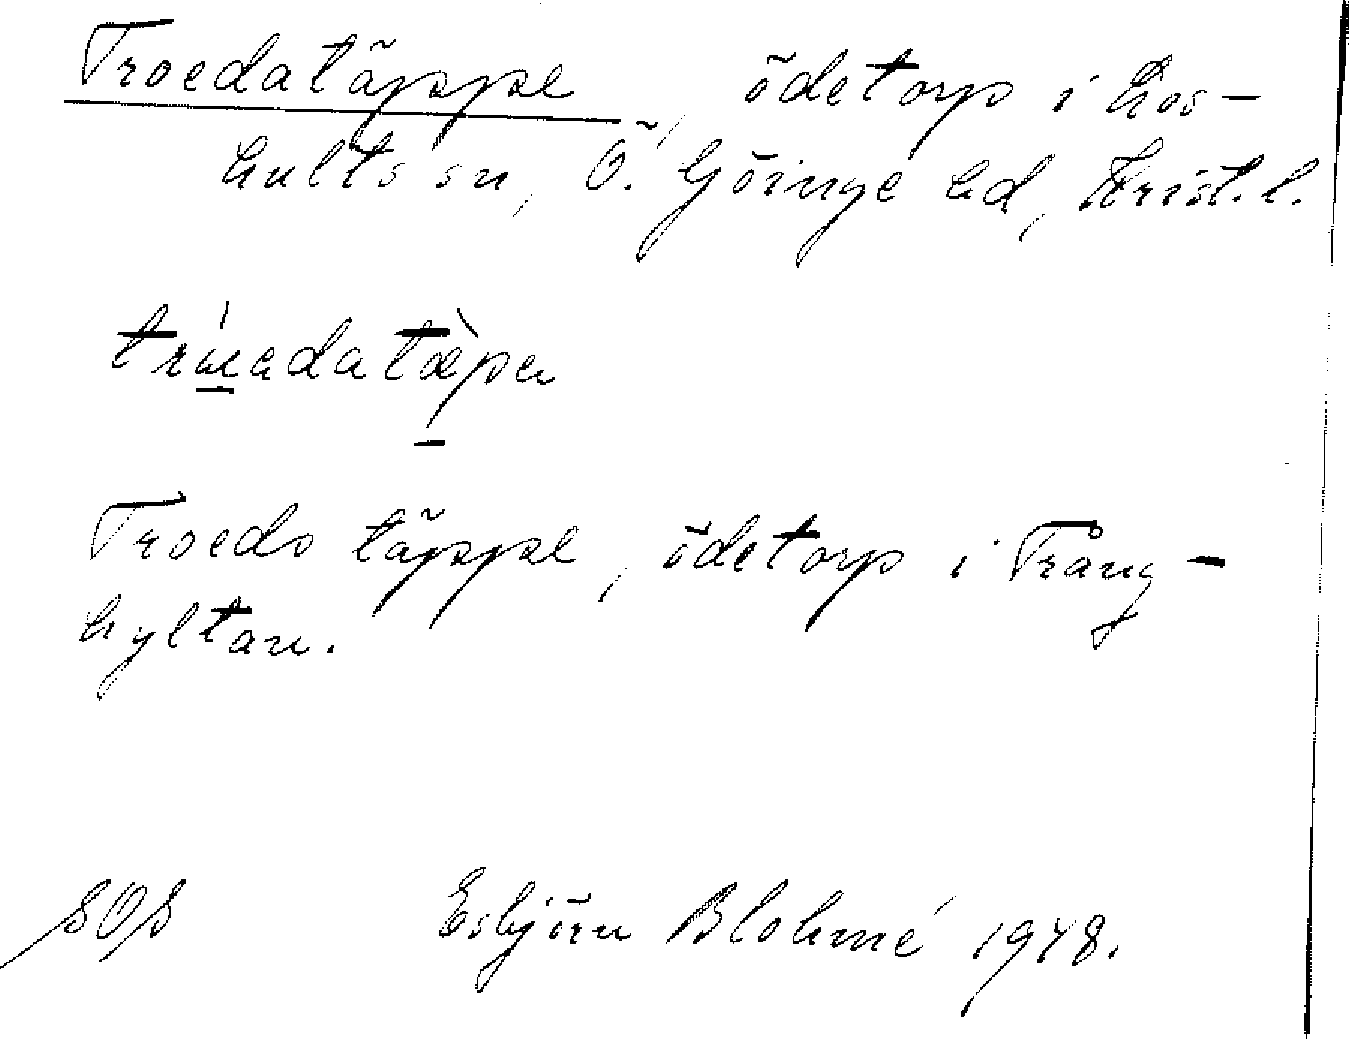 Troedatäppe, ödetorp i Los-
hults sn, Ö. Göinge hd, Krist. l.
Troeds täppe, ödetorp i Trång-
hyltan.
SOS Esbjörn Blohmé 1948.